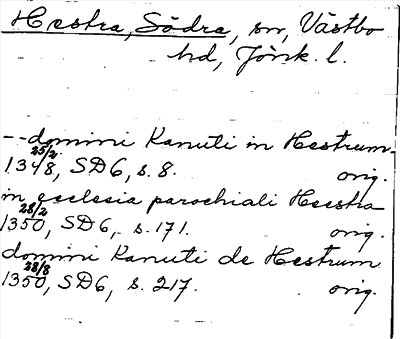 Hestra, Södra, sn, Västbo
hd, Jönk. l.
-- domini Kanuti in Hestrum
25/2 1348, SD6, s. 8. orig.
in ecclesia parochiali Heestra
28/2 1350, SD6, s. 171. orig.
domini Kanuti de Hestrum
28/8 1350, SD6, s. 217. orig.